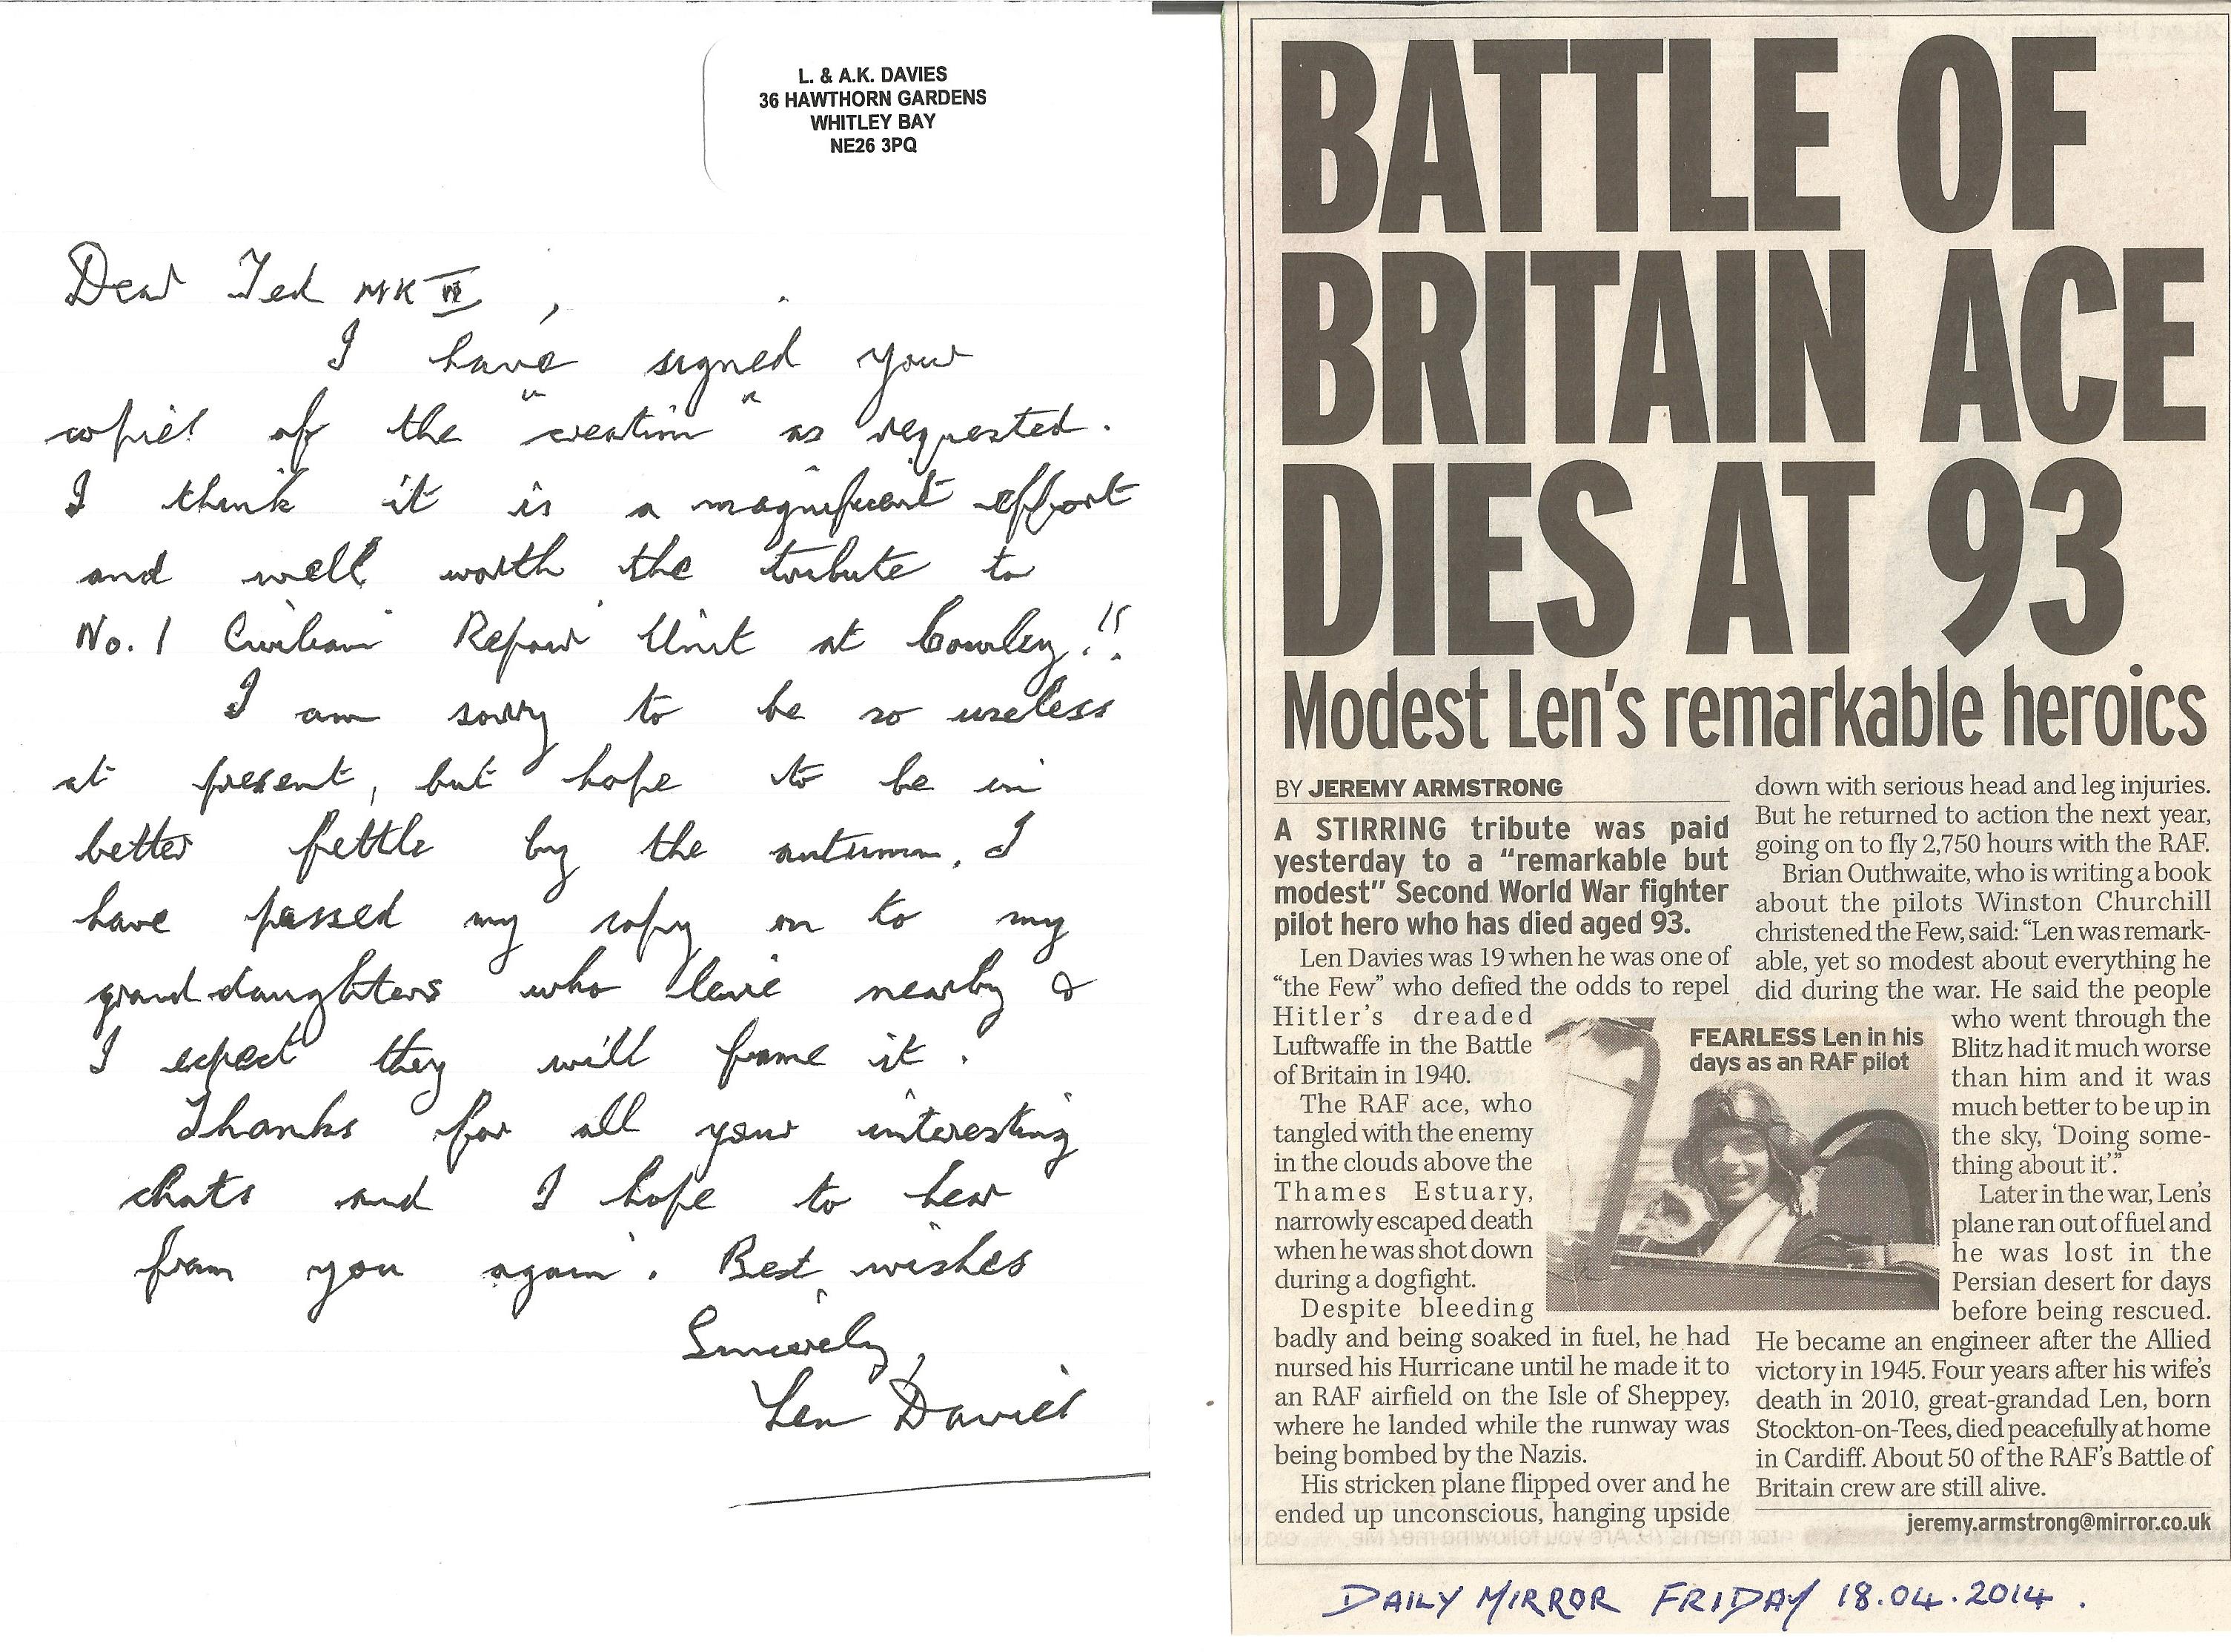 L. & A.K. DAVIES
36 HAWTHORN GARDENS
WHITLEY BAY
NE26 3PQ
Dear Ted MK VI,
I have signed your
copies of the "creation" as requested.
I think it is a magnificent effort
and well worth the tribute to
No. 1 Civilian Repair Unit at Cowley!!
I am sorry to be so useless
at present, but hope to be in
better fettle by the autumn. I
have passed my copy on to my
grand daughters who live nearby &
I expect they will frame it.
Thanks for all your interesting
chats and I hope to hear
from you again. Best wishes
Sincerely,
Len Davies
BATTLE OF
BRITAIN ACE
DIES AT 93
Modest Len's remarkable heroics
BY JEREMY ARMSTRONG
A STIRRING tribute was paid
yesterday to a “remarkable but
modest” Second World War fighter
pilot hero who has died aged 93.
Len Davies was 19 when he was one of
“the Few” who defied the odds to repel
Hitler's dreaded
Luftwaffe in the Battle
of Britain in 1940.
The RAF ace, who
tangled with the enemy
in the clouds above the
Thames Estuary,
narrowly escaped death
when he was shot down
during a dogfight.
Despite bleeding
badly and being soaked in fuel, he had
nursed his Hurricane until he made it to
an RAF airfield on the Isle of Sheppey,
where he landed while the runway was
being bombed by the Nazis.
His stricken plane flipped over and he
ended up unconscious, hanging upside
down with serious head and leg injuries.
But he returned to action the next year,
going on to fly 2,750 hours with the RAF.
Brian Outhwaite, who is writing a book
about the pilots Winston Churchill
christened the Few, said: “Len was remark-
able, yet so modest about everything he
did during the war. He said the people
who went through the
Blitz had it much worse
than him and it was
much better to be up in
the sky, ‘Doing some-
thing about it’.”
FEARLESS Len in his
days as an RAF pilot
Later in the war, Len's
plane ran out of fuel and
he was lost in the
Persian desert for days
before being rescued.
He became an engineer after the Allied
victory in 1945. Four years after his wife's
death in 2010, great-grandad Len, born
Stockton-on-Tees, died peacefully at home
in Cardiff. About 50 of the RAF's Battle of
Britain crew are still alive.
jeremy.armstrong@mirror.co.uk
DAILY MIRROR FRIDAY 18.04.2014.